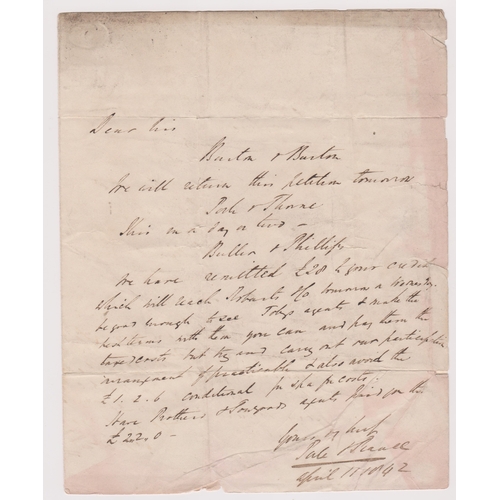 Dear Sir
Burton & Burton
We will return this petition tomorrow
& Thorne
This in a day or two –
Buller & Phillips
We have remitted £28 to your credit
which will reach Robarts & Co tomorrow or Wednesday.
be good enough to see agents & make the
best terms with them you can and pay them the
taxed costs but try and carry out our
arrangement if practicable & also avoid the
£1. 2. 6 conditional costs.
Have Brothers & agents paid you the
£22.0 –
Yours
April 11 1842